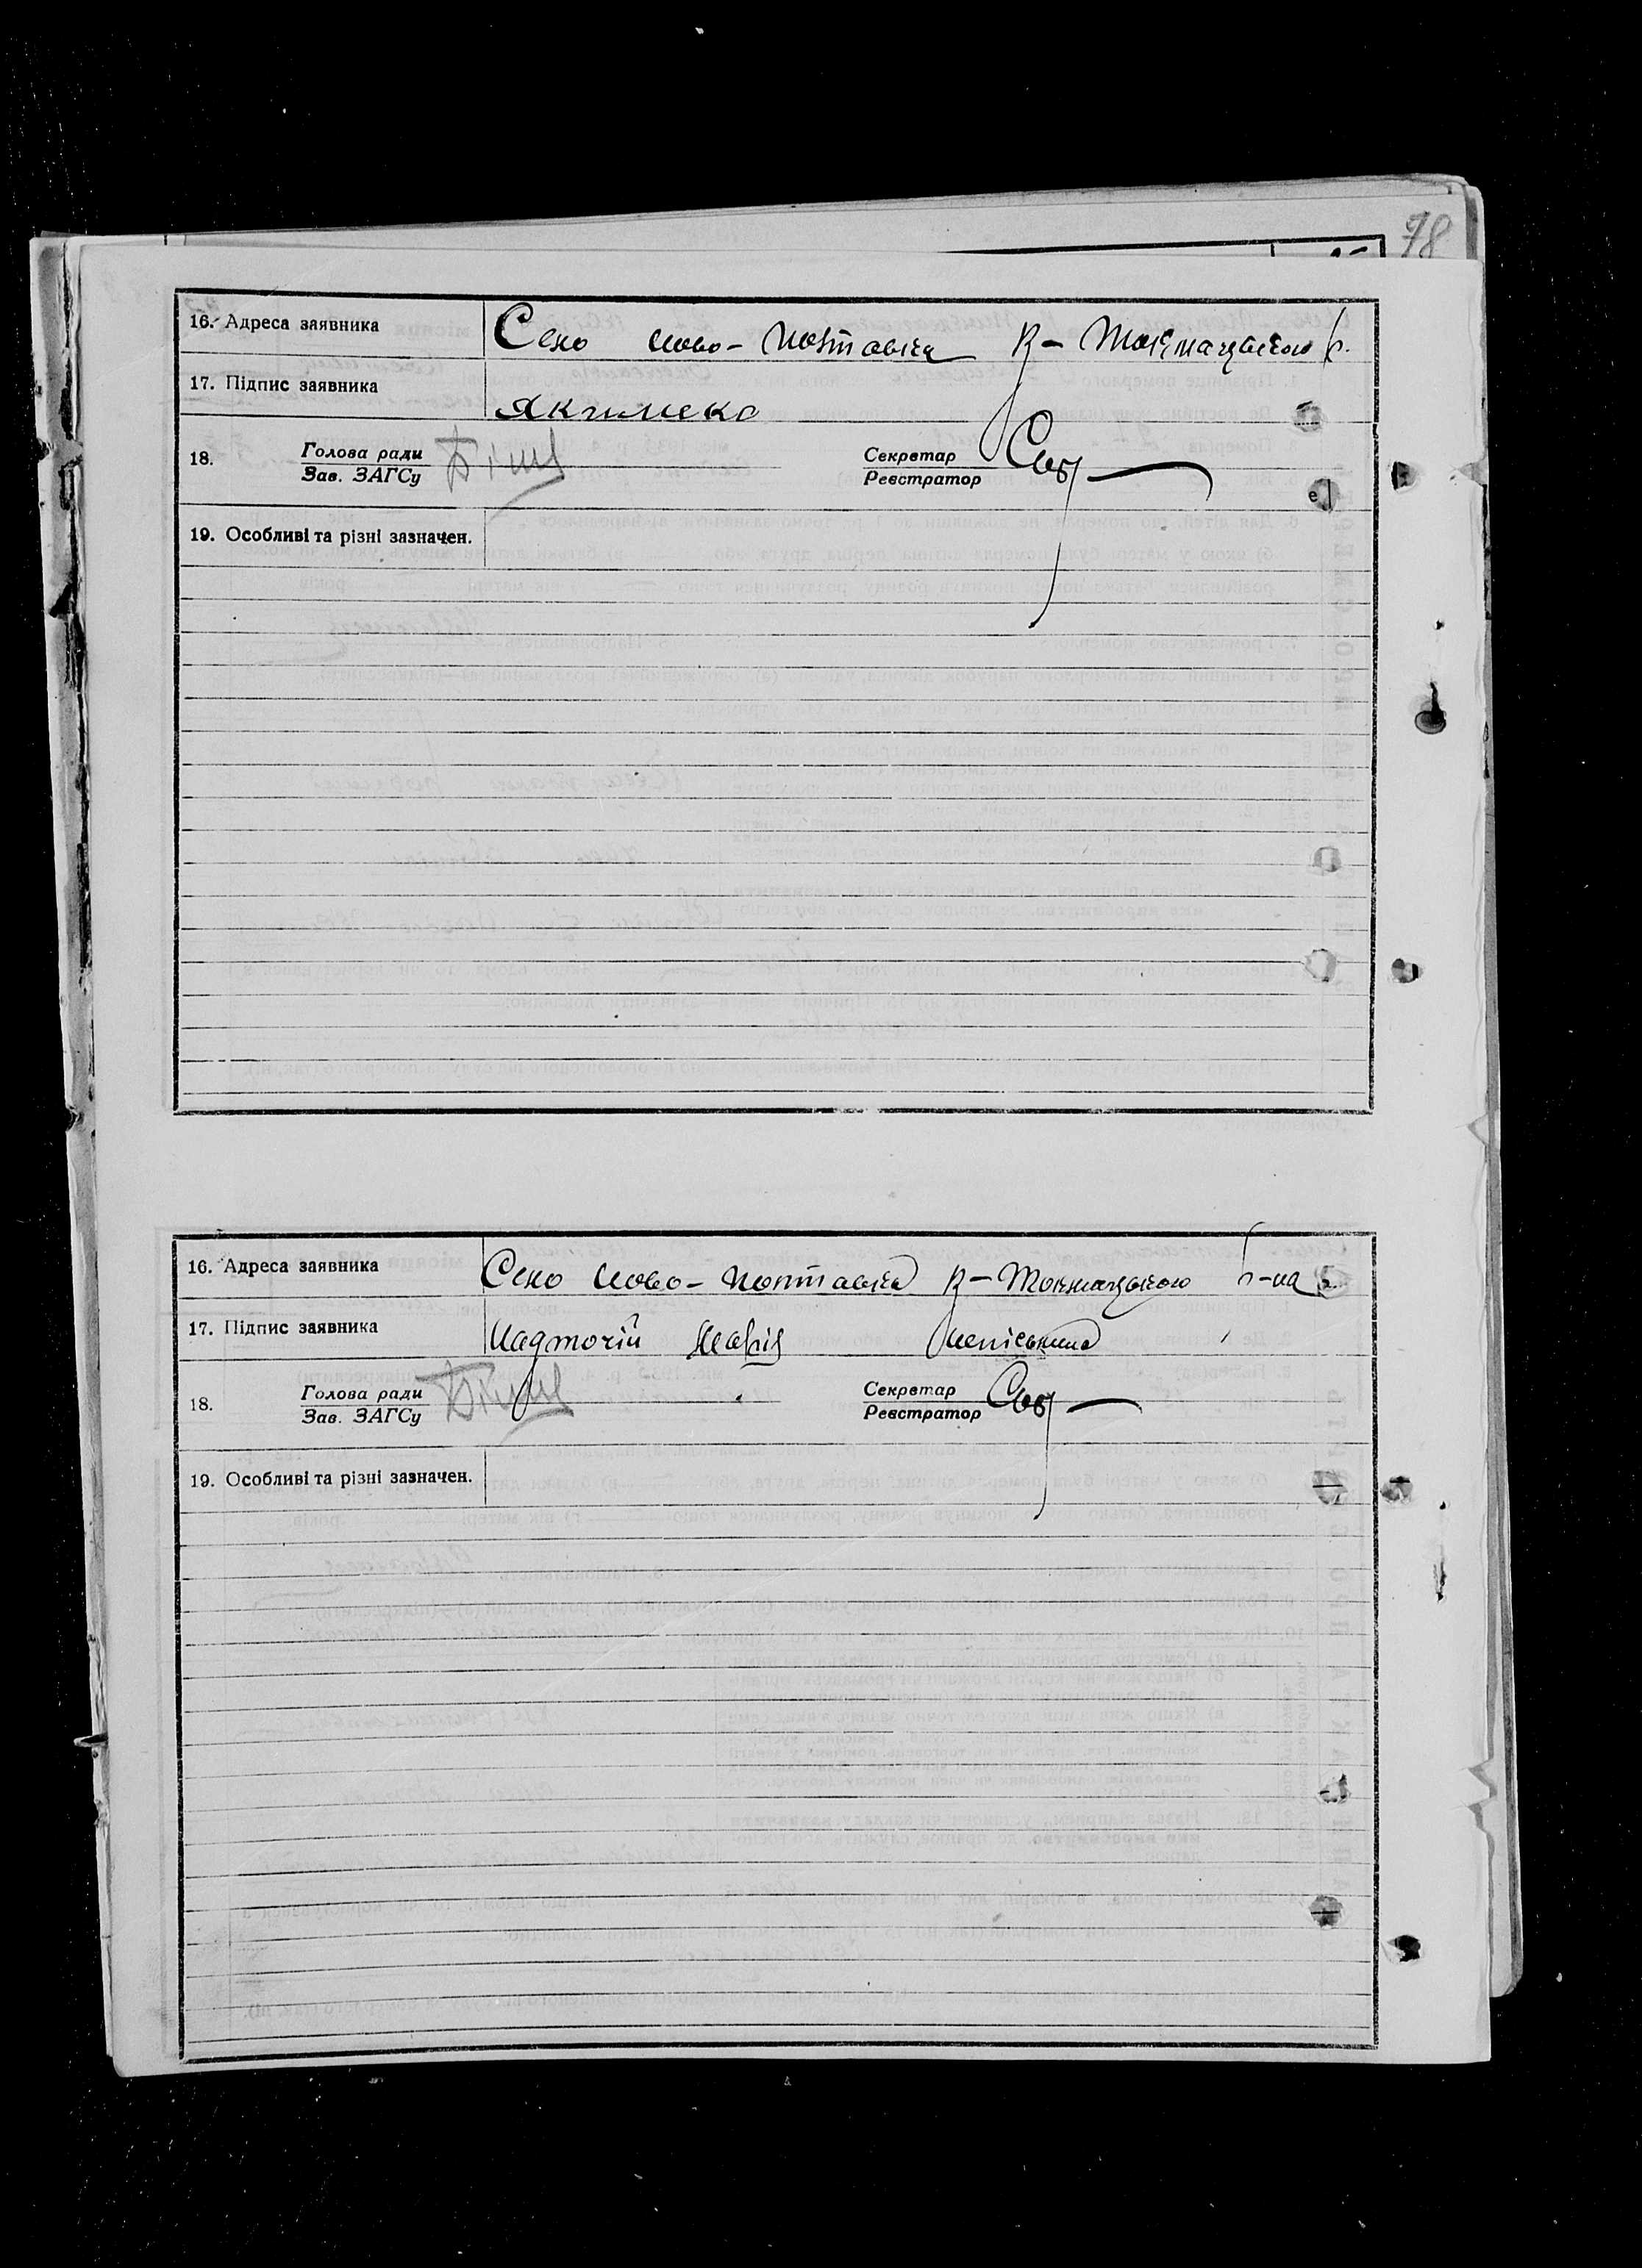 78
16. Адреса заявника Село Ново-Полтавка В-Токмацького р.
17. Підпис заявника Якименко
18. Голова ради Секретар
Зав. ЗАГСу Реєстратор
19. Особливі та різні зазначен.
16. Адреса заявника Село Ново-Полтавка В-Токмацького р-на
17. Підпис заявника Надточій Марія неписьменна
18. Голова ради Секретар
Зав. ЗАГСу Реєстратор
19. Особливі та різні зазначен.